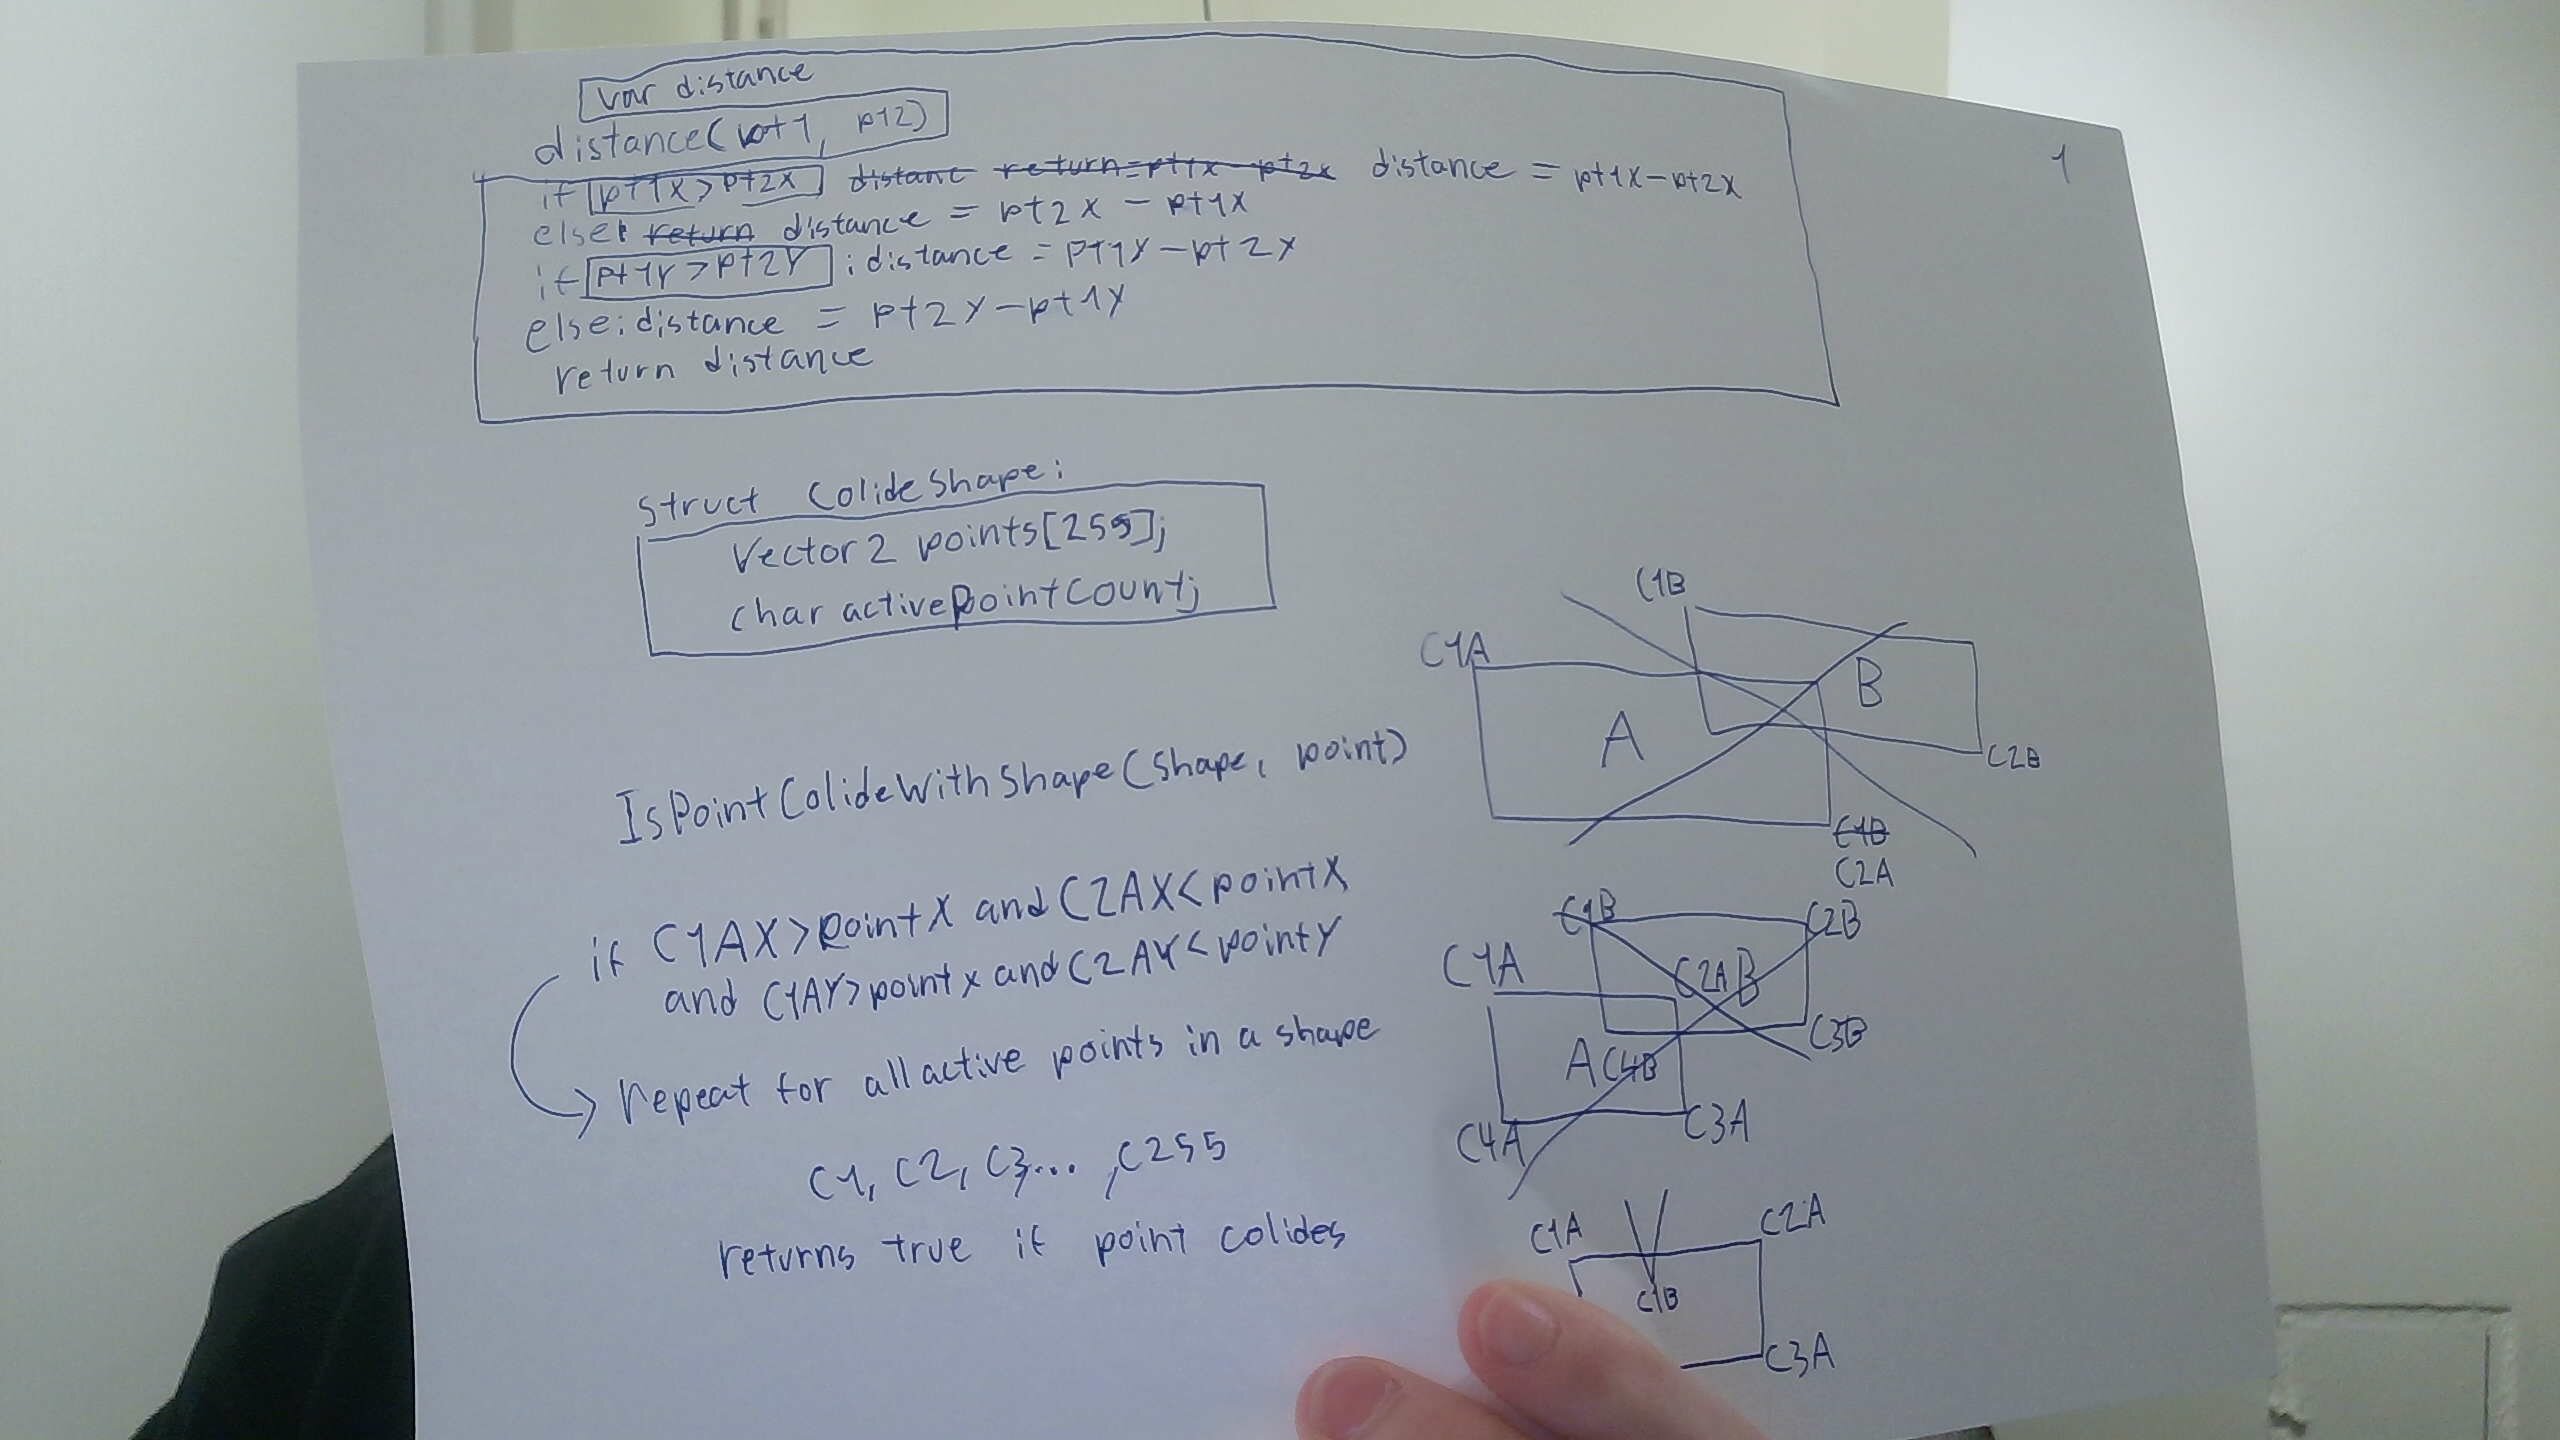 1
var distance
distance(pt1, pt2)
if pt1x>pt2x distanc return=pt1x-pt2x distance = pt1x-pt2x
else: return distance = pt2x - pt1x
if pt1y>pt2y: distance = pt1y-pt2y
else: distance = pt2y-pt1y
return distance
struct ColideShape:
Vector2 points[255];
char activePointCount;
IsPointColideWithShape(shape, point)
if C1AX>pointX and C2AX<pointX
and C1AY>pointx and C2AY<pointY
repeat for all active points in a shape
C1, C2, C3... ,C255
returns true if point colides
C1B
C1A
B
A
C2B
C1B
C2A
C1B
C2B
C1A
C2A
B
C3B
A
C4B
C3A
C4A
C1A
C2A
C1B
C3A